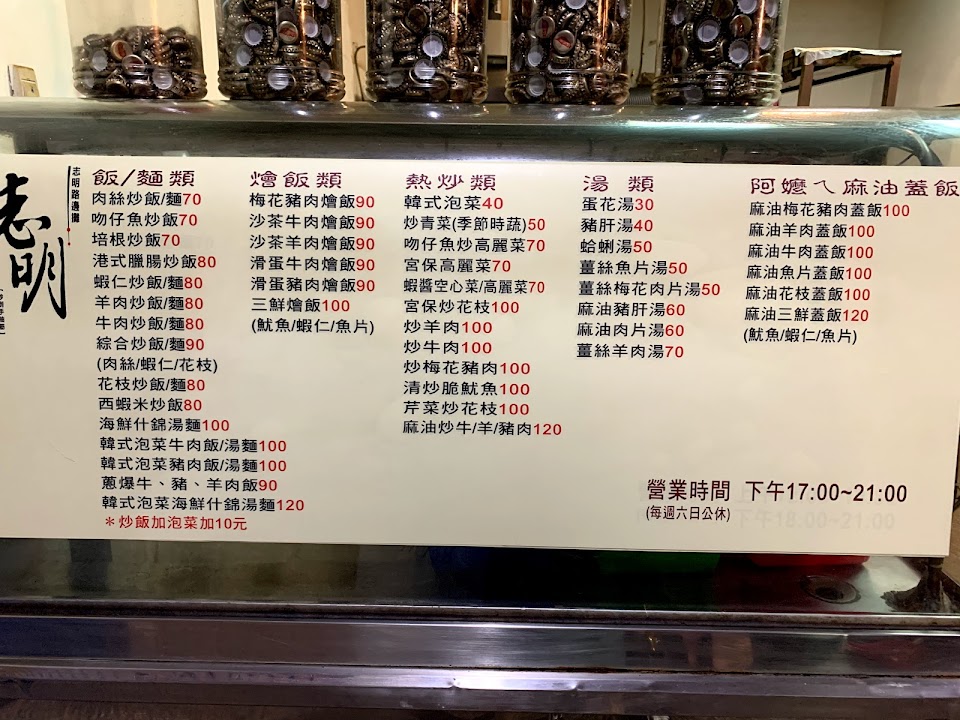 志明
志明路邊攤
飯/麵類
肉絲炒飯/麵70
吻仔魚炒飯70
培根炒飯70
港式臘腸炒飯80
蝦仁炒飯/麵80
羊肉炒飯/麵80
牛肉炒飯/麵80
綜合炒飯/麵90
(肉絲/蝦仁/花枝)
花枝炒飯/麵80
西蝦米炒飯80
海鮮什錦湯麵100
韓式泡菜牛肉飯/湯麵100
韓式泡菜豬肉飯/湯麵100
蔥爆牛、豬、羊肉飯90
韓式泡菜海鮮什錦湯麵120
＊炒飯加泡菜加10元
燴飯類
梅花豬肉燴飯90
沙茶牛肉燴飯90
沙茶羊肉燴飯90
滑蛋牛肉燴飯90
滑蛋豬肉燴飯90
三鮮燴飯100
(魷魚/蝦仁/魚片)
熱炒類
韓式泡菜40
炒青菜(季節時蔬)50
吻仔魚炒高麗菜70
宮保高麗菜70
蝦醬空心菜/高麗菜70
宮保炒花枝100
炒羊肉100
炒牛肉100
炒梅花豬肉100
清炒脆魷魚100
芹菜炒花枝100
麻油炒牛/羊/豬肉120
湯 類
蛋花湯30
豬肝湯40
蛤蜊湯50
薑絲魚片湯50
薑絲梅花肉片湯50
麻油豬肝湯60
麻油肉片湯60
薑絲羊肉湯70
阿嬤ㄟ麻油蓋飯
麻油梅花豬肉蓋飯100
麻油羊肉蓋飯100
麻油牛肉蓋飯100
麻油魚片蓋飯100
麻油花枝蓋飯100
麻油三鮮蓋飯120
(魷魚/蝦仁/魚片)
營業時間 下午17:00~21:00
(每週六日公休)
下午18:00~21:00